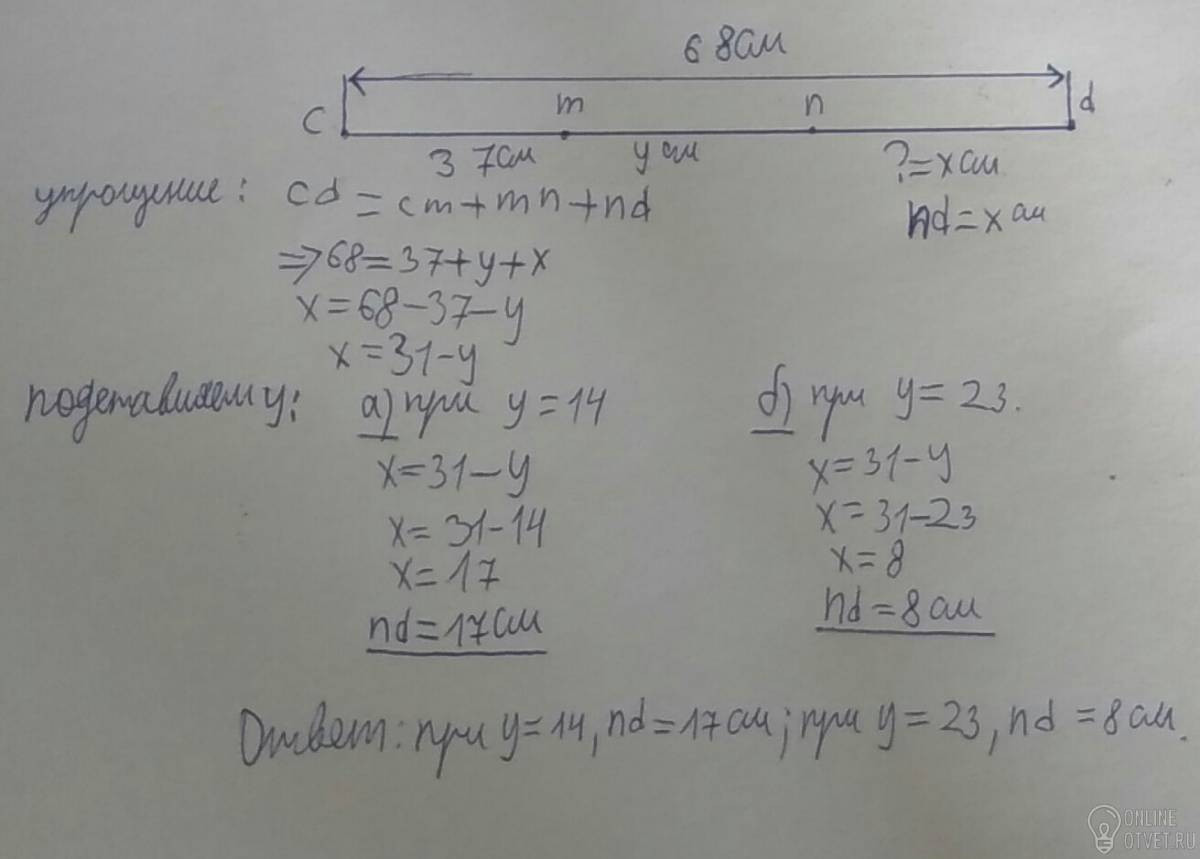 68см
c m n d
37см y см ?=x см
nd=x см
упрощение: cd=cm+mn+nd
=>68=37+y+x
x=68-37-y
x=31-y
подставим y: а) при y=14 б) при y=23.
x=31-y x=31-y
x=31-14 x=31-23
x=17 x=8
nd=17см nd=8см
Ответ: при y=14, nd=17см; при y=23, nd=8см.
ONLINE
OTVET.RU